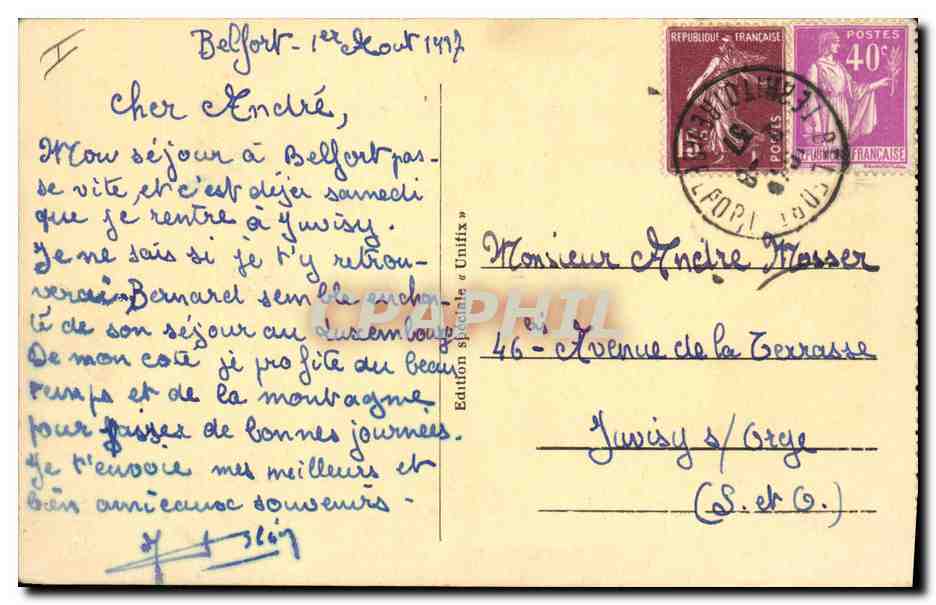 I
Belfort - 1er Aout 1937
Cher André,
Mon séjour à Belfort pas-
se vite, et c'est déja samedi
que je rentre à Juvisy.
Je ne sais si je t'y retrou-
verai. Bernard semble enchan-
té de son séjour au Luxembourg.
De mon coté je profite du beau
temps et de la montagne
pour passer de bonnes journées.
Je t'envoie mes meilleurs et
bien amicaux souvenirs -
Edition spéciale « Unifix »
CPAPHIL
REPUBLIQUE FRANÇAISE
POSTES
POSTES
40c
REPUBLIQUE FRANÇAISE
BELFORT
37
Monsieur André Mosser
46 bis - Avenue de la Terrasse
Juvisy s/ Orge
(S. et O.)